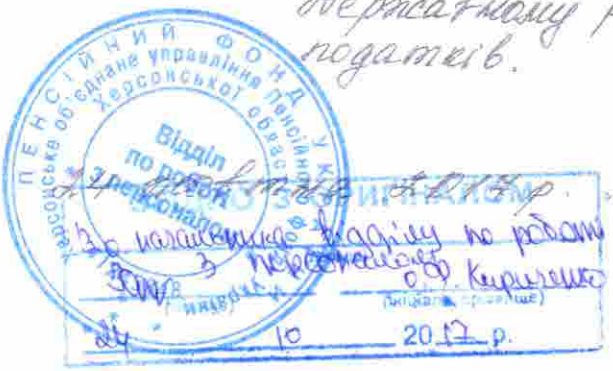 Державному р
податків.
ПЕНСІЙНИЙ ФОНД УК
Херсонське об'єднане управління Пенсійного
Херсонської області
Відділ
по роботі
з персоналом
24 жовтня 2017 р.
З ОРИГІНАЛОМ
В.о начальника відділу по роботі
з персоналом
О.Ф. Кириченко
(підпис)
(ініціали, прізвище)
24 10 2017 р.